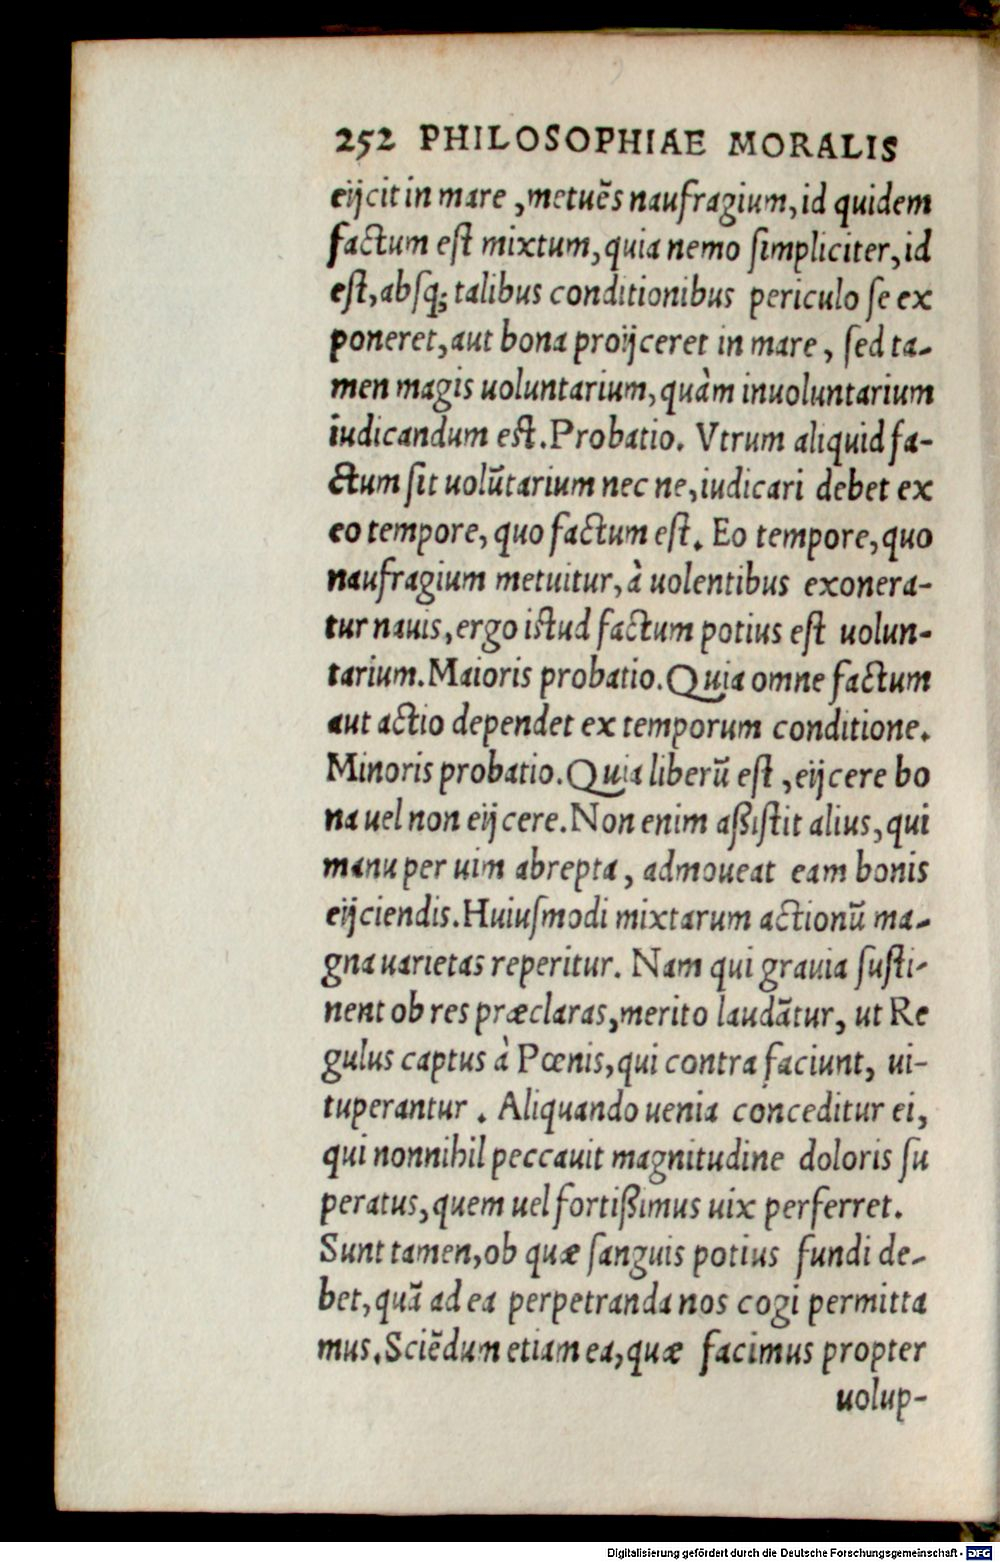 252 PHILOSOPHIAE MORALIS
eijcit in mare, metuẽs naufragium, id quidem
factum est mixtum, quia nemo simpliciter, id
est, absq; talibus conditionibus periculo se ex
poneret, aut bona proijceret in mare, sed ta-
men magis uoluntarium, quàm inuoluntarium
iudicandum est. Probatio. Vtrum aliquid fa-
ctum sit uolũtarium nec ne, iudicari debet ex
eo tempore, quo factum est. Eo tempore, quo
naufragium metuitur, à uolentibus exonera-
tur nauis, ergo istud factum potius est uolun-
tarium. Maioris probatio. Quia omne factum
aut actio dependet ex temporum conditione.
Minoris probatio. Quia liberũ est, eijcere bo
na uel non eijcere. Non enim aßistit alius, qui
manu per uim abrepta, admoueat eam bonis
eijciendis. Huiusmodi mixtarum actionũ ma-
gna uarietas reperitur. Nam qui grauia susti-
nent ob res præclaras, merito laudãtur, ut Re
gulus captus à Pœnis, qui contra faciunt, ui-
tuperantur. Aliquando uenia conceditur ei,
qui nonnihil peccauit magnitudine doloris su
peratus, quem uel fortißimus uix perferret.
Sunt tamen, ob quæ sanguis potius fundi de-
bet, quã ad ea perpetranda nos cogi permitta
mus. Sciẽdum etiam ea, quæ facimus propter
uolup-
Digitalisierung gefördert durch die Deutsche Forschungsgemeinschaft - DFG